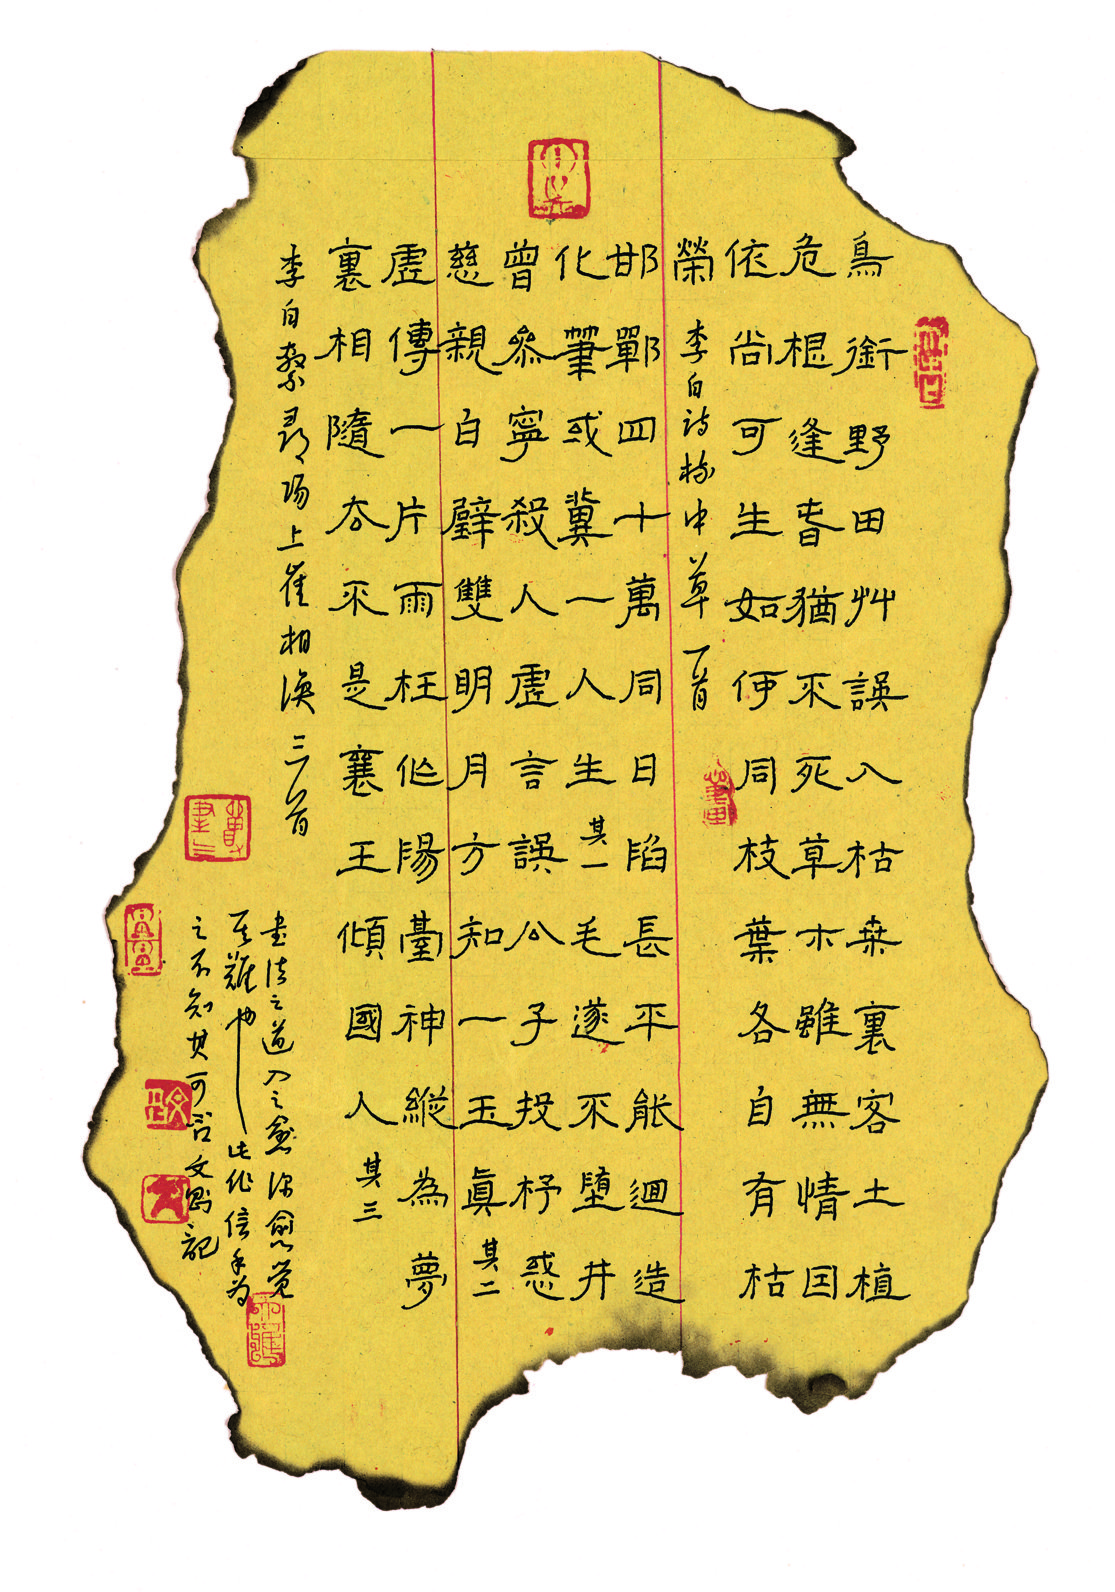 鳥銜野田艸誤入枯桒裏客土植
危根逢春猶不死草木雖無情囙
依尚可生如何同枝葉各自有枯
榮 李白诗樹中草一首
邯鄲四十萬同日陷長平能迴造
化筆或冀一人生 其一 毛遂不墮井
曾參寧殺人虛言誤公子投杼惑
慈親白璧雙明月方知一玉真 其二
虛傳一片雨枉作陽臺神縱為夢
裏相隨去不是襄王傾國人 其三
李白繫尋陽上崔相渙三首
書法之道入之愈深愈覺
其難也此作信手為
之不知其可否文記